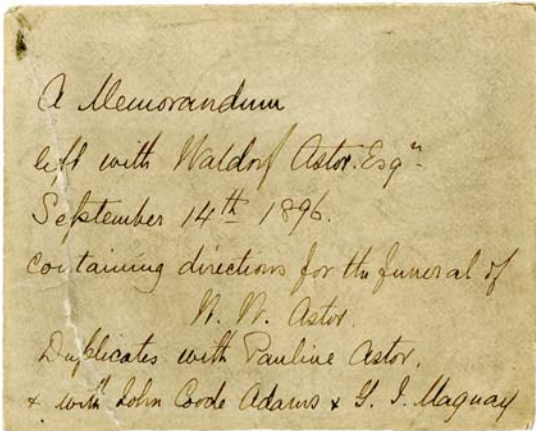 A Memorandum
left with Waldorf Astor. Esqr.
September 14th 1896.
containing directions for the funeral of
W. W. Astor.
Duplicates with Pauline Astor,
& with John Coode Adams & G. J. Maquay